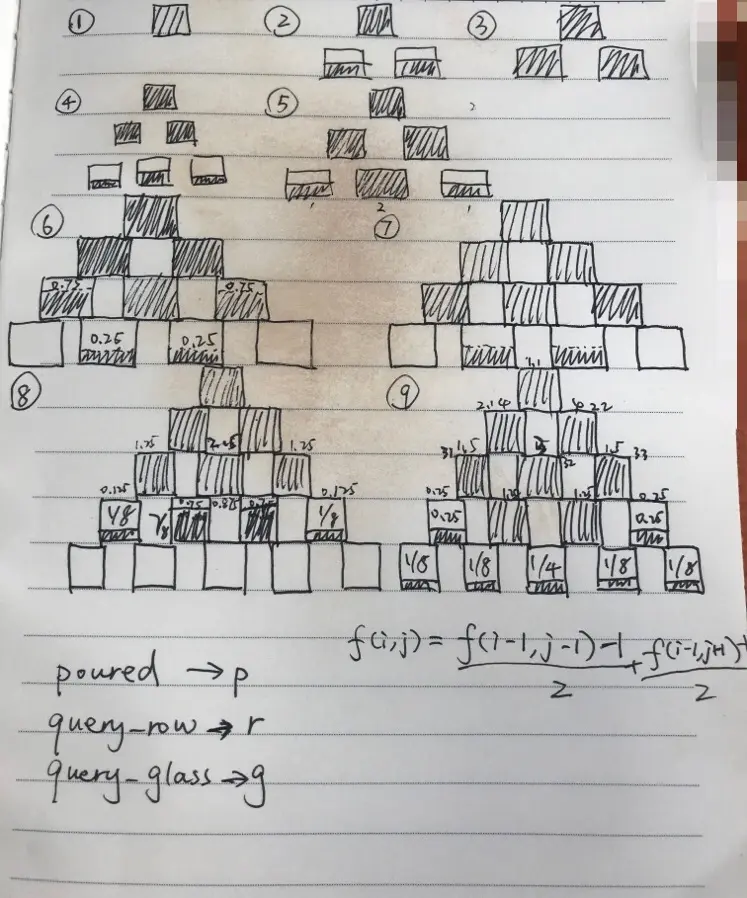 ① ② ③
④ ⑤
1 2 1
⑥ ⑦
0.75 0.75
0.25 0.25
⑧ ⑨
2.14 2.2
1.25 1.25 31 1.5 32 1.5 33
0.125 0.875 0.125 0.25 1.25 0.25
1/8 7/8 1/8 0.25 0.25
1/8 1/8 1/4 1/8 1/8
f(i,j) = f(i-1,j-1)-1 / 2 + f(i-1,j+1)-1 / 2
poured → p
query_row → r
query_glass → g